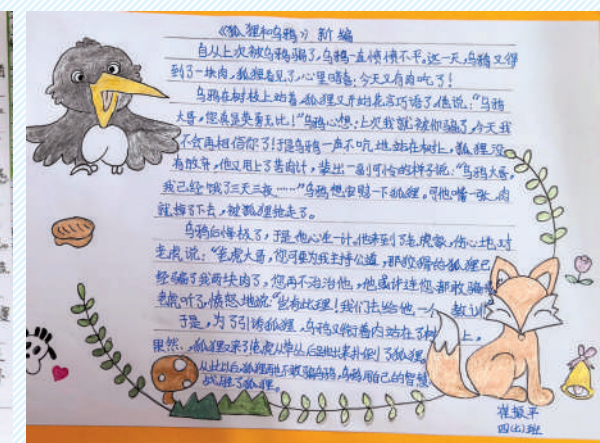 《狐狸和乌鸦》新编
自从上次被乌鸦骗了，乌鸦一直愤愤不平。这一天，乌鸦又得
到了一块肉，狐狸看见了，心里暗喜：今天又有肉吃了！
乌鸦在树枝上站着，狐狸又开始花言巧语了，他说：“乌鸦
大哥，您真是英勇无比！”乌鸦心想：上次我就被你骗了，今天我
不会再相信你了！于是乌鸦一声不吭地站在树上，狐狸没
有放弃，他又用上了苦肉计，装出一副可怜的样子说：“乌鸦大哥，
我已经饿了三天三夜……”乌鸦想安慰一下狐狸。可他嘴一张，肉
就掉了下去，被狐狸抢走了。
乌鸦后悔极了，于是他心生一计，他来到了老虎家，伤心地对
老虎说：“老虎大哥，你可要为我主持公道，那狡猾的狐狸已
经骗了我两块肉了，您再不治治他，他或许连您都敢骗
老虎听了，愤怒地说：“岂有此理！我们去给他一个教训
于是，为了引诱狐狸，乌鸦又衔着肉站在了树上，
果然，狐狸又来了，老虎从草丛后跳出来扑倒了狐狸，
从此以后，狐狸再也不敢骗乌鸦，乌鸦用自己的智慧
战胜了狐狸。
崔振平
四（七）班